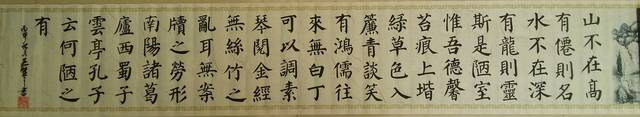 山不在高
有僊則名
水不在深
有龍則靈
斯是陋室
惟吾德馨
苔痕上堦
綠草色入
簾青談笑
有鴻儒往
來無白丁
可以調素
琴閱金經
無絲竹之
亂耳無案
牘之勞形
南陽諸葛
廬西蜀子
雲亭孔子
云何陋之
有